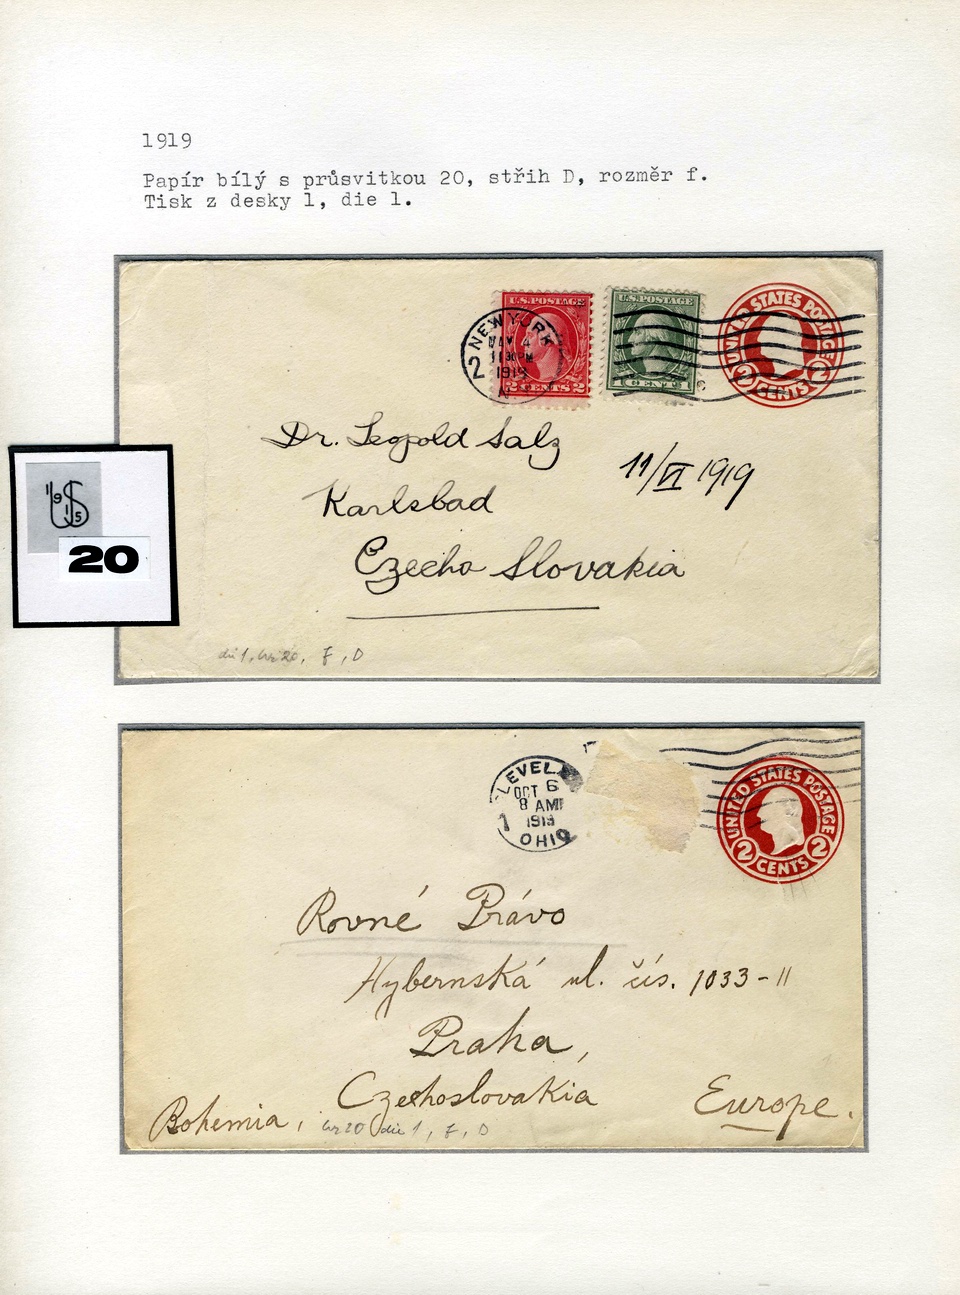 1919
Papír bílý s průsvitkou 20, střih D, rozměr f.
Tisk z desky 1, die 1.
U.S. POSTAGE
2 CENTS 2
U.S. POSTAGE
1 CENT 1
UNITED STATES POSTAGE
2 CENTS
NEW YORK
2
4
1130 PM
1919
N
Dr. Leopold Salz
11/VI 1919
Karlsbad
Czecho Slovakia
1915
US
20
die 1, wz 20, f, D
CLEVEL
OCT 6
8 AM
1919
1
OHIO
UNITED STATES POSTAGE
2 CENTS 2
Rovné Právo
Hybernská ul. čís. 1033-II
Praha,
Czechoslovakia
Europe.
Bohemia,
wz 20 die 1, f, D